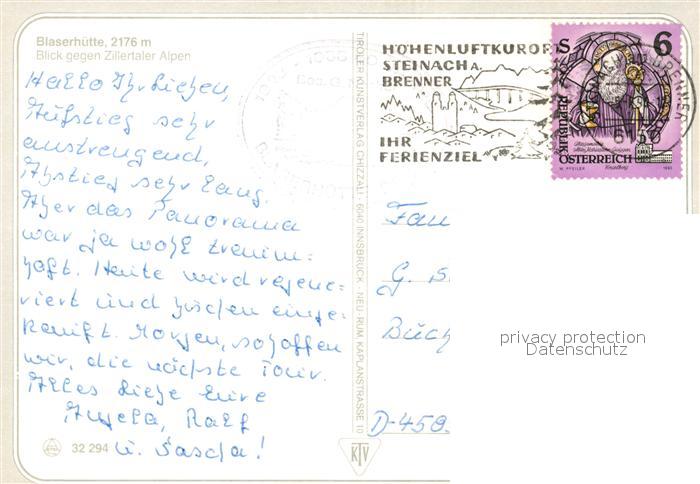 Blaserhütte, 2176 m
Blick gegen Zillertaler Alpen
Hallo Ihr Lieben,
Aufstieg sehr
anstrengend,
Abstieg sehr lang.
Aber das Panorama
war ja wohl traum=
haft. Heute wird regene=
riert und bischen einge=
kauft. Morgen, so hoffen
wir, die nächste Tour.
Alles Liebe Eure
Angela, Ralf
u. Sascha!
32 294
TIROLER KUNSTVERLAG CHIZZALI · 6040 INNSBRUCK - NEU-RUM, KAPLANSTRASSE 10
KTV
HÖHENLUFTKURORT
STEINACH A.
BRENNER
IHR
FERIENZIEL
S 6
REPUBLIK
ÖSTERREICH
Fam
G. S
Büch
D-459
privacy protection
Datenschutz